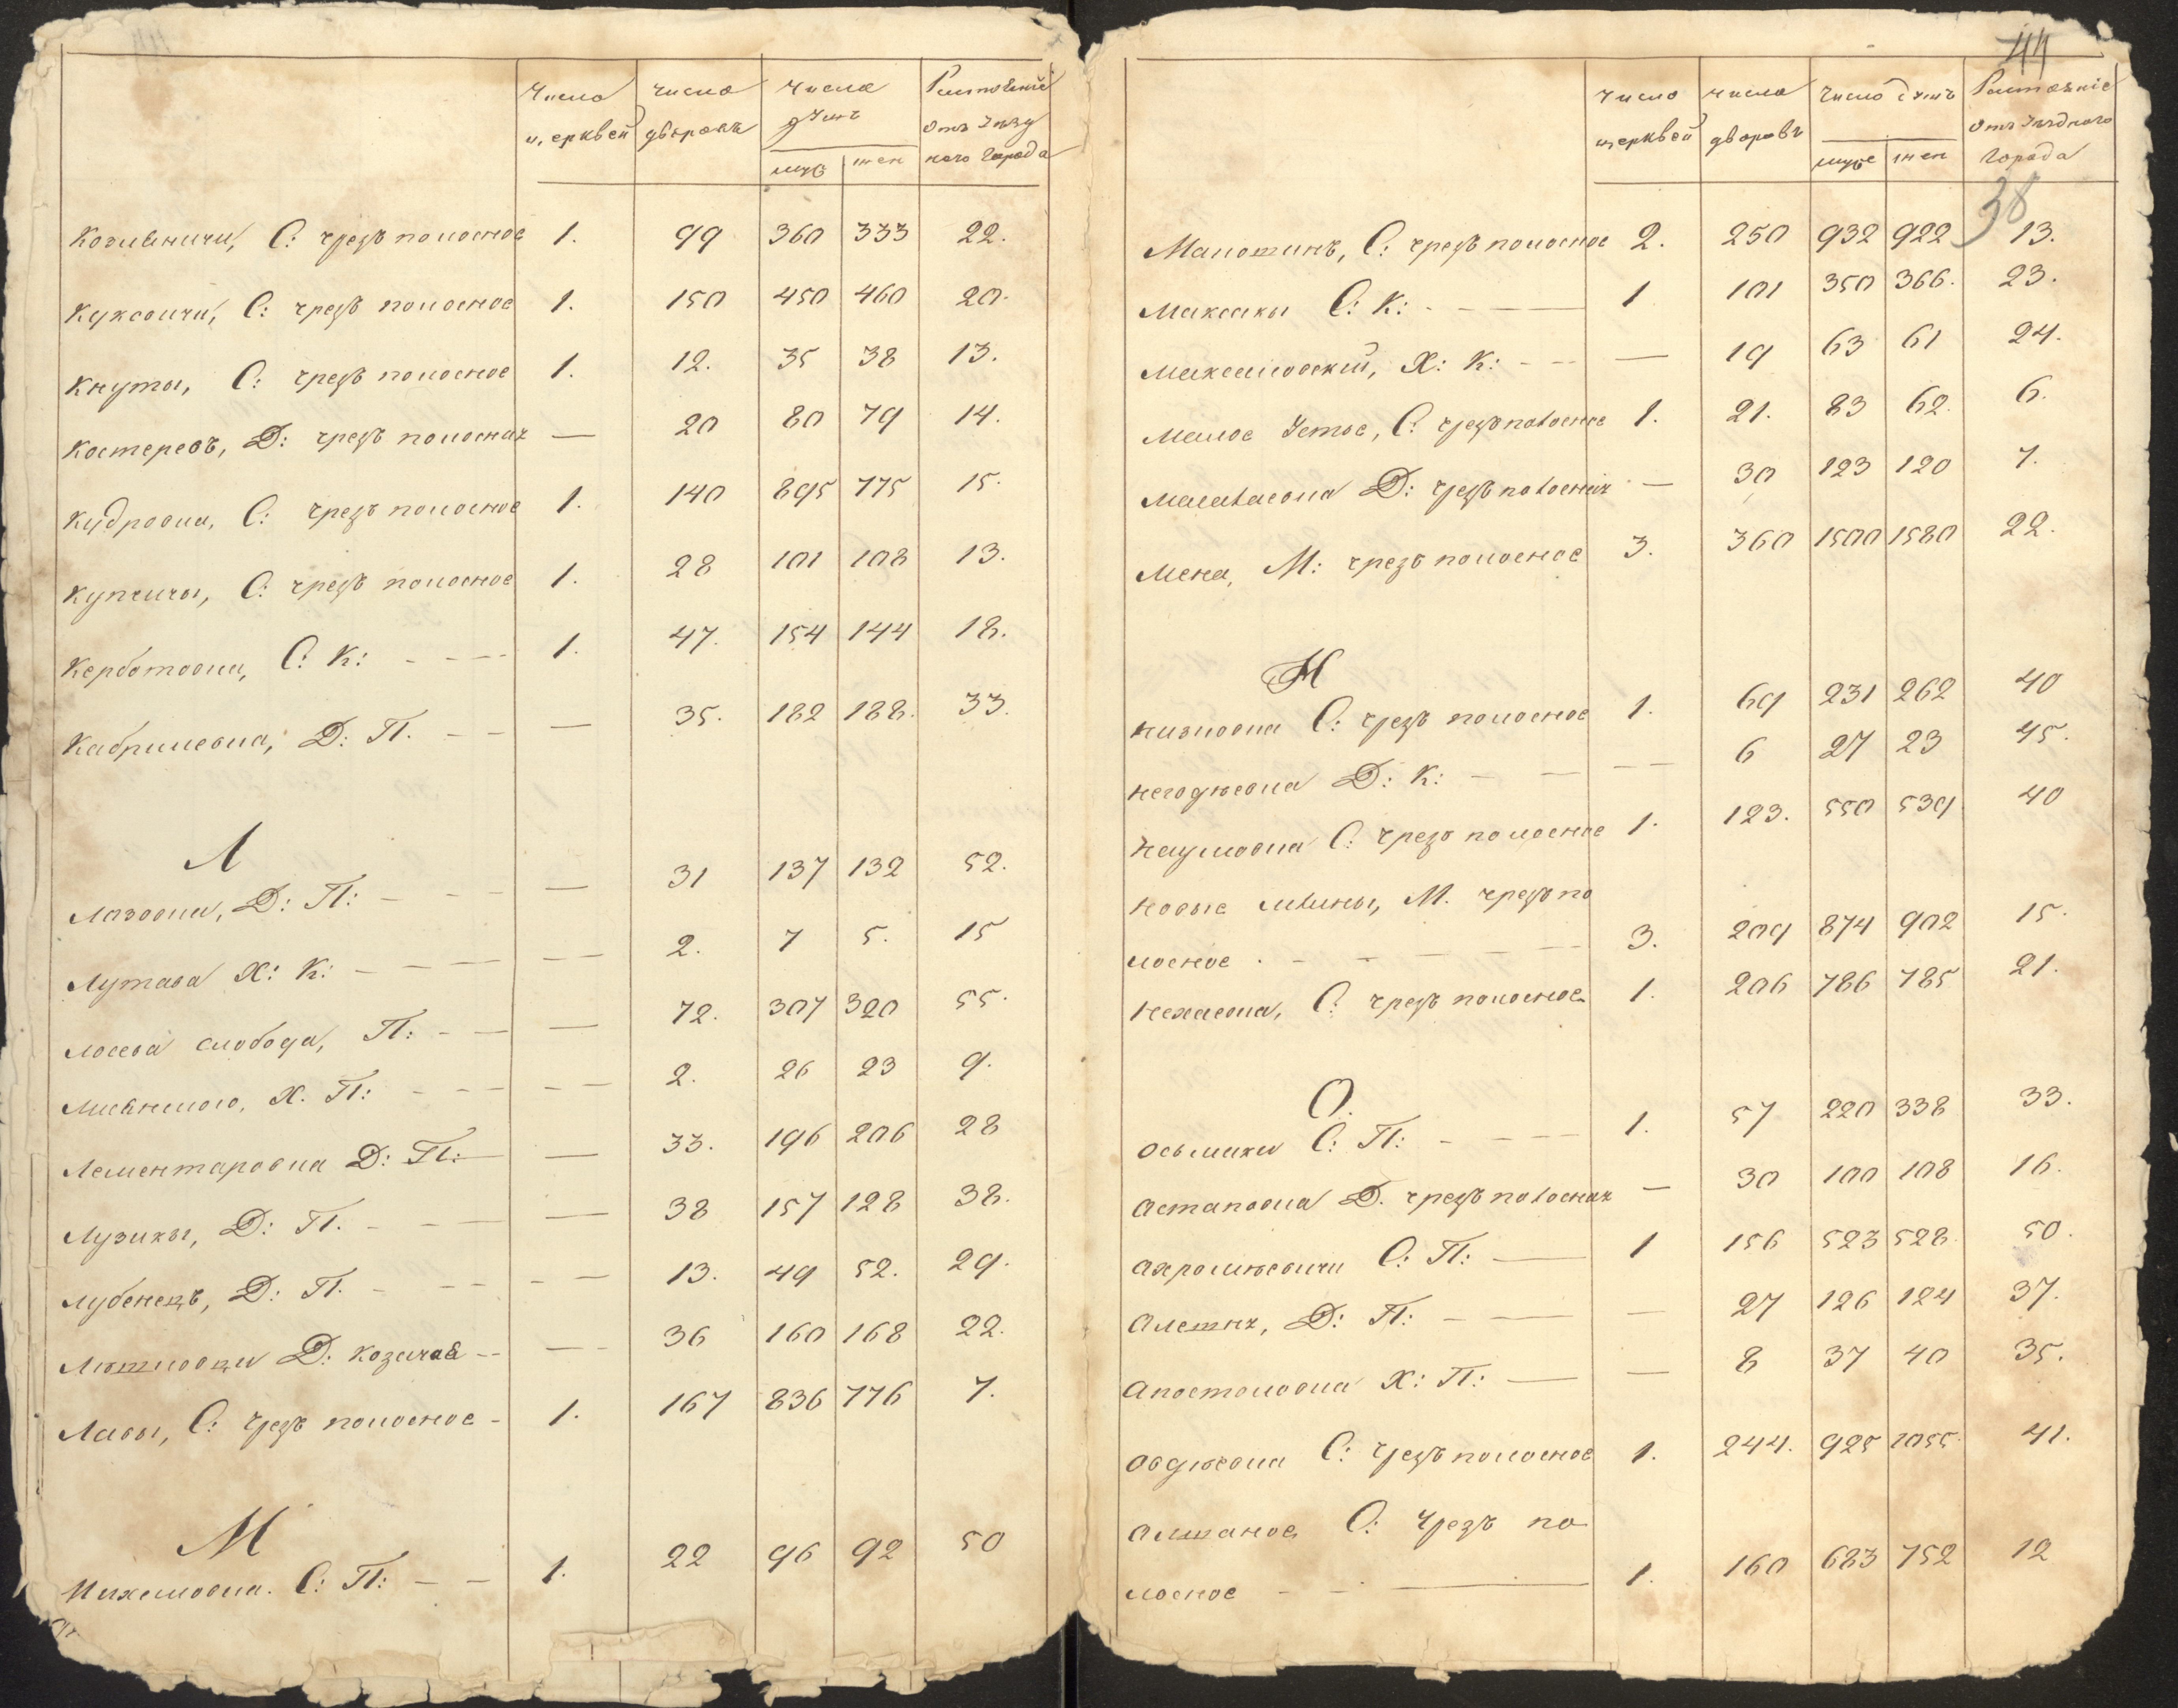 Число церквей Число дворовъ Число душъ муж жен Растоянiе отъ Уезднаго Города
Козляничи, С: чрезъ полосное 1. 99 360 333 22.
Куковичи, С: чрезъ полосное 1. 150 450 460 20.
Кнуты, С: чрезъ полосное 1. 12. 35 38 13.
Костеревъ, Д: чрезъ полосная — 20 80 79 14.
Кудровка, С: чрезъ полосное 1. 140 895 775 15.
Купчичы, С: чрезъ полосное 1. 28 101 108 13.
Керботовка, С: К: - - - - 1. 47. 154 144 18.
Д: П. - - — 35. 182 188. 33.
Л
Лазовка, Д: П: - - - — 31 137 132 52.
Лутава Х: К: - - - - - 2. 7 5. 15
Лосева слобода, П: - — — 72. 307 320 55.
Х. П: - - - - - 2. 26 23 9.
Лементаровка Д: П: — 33. 196 206 28
Лузики, Д: П. - - - — 38 157 128 38.
Лубенецъ, Д: П. - - - - - 13. 49 52. 29.
Д: козачая - - - - 36 160 168 22.
Лавы, С: чрезъ полосное - 1. 167 836 776 7.
М
Михаловка. С: П: - - 1. 22 96 92 50
44
38
Число церквей Число дворовъ Число душъ муже жен Растоянiе отъ Уезднаго Города
Макошинъ, С: чрезъ полосное 2. 250 932 922 13.
Максаки С: К: - - — 1 101 350 366. 23.
Максаковский, Х: К: - - — 19 63 61 24.
Малое Устье, С: чрезъ полосное 1. 21. 83 62. 6.
Д: чрезъ полосная — 30 123 120 7.
Мена, М: чрезъ полосное 3. 360 1500 1580 22.
Н
Низковка С: чрезъ полосное 1. 69 231 262 40
Д: К: - — - - 6 27 23 45.
Наумовка С: чрезъ полосное 1. 123. 550 539 40
Новые млины, М. чрезъ по
лосное - - - - 3. 209 874 902 15.
Нехаевка, С: чрезъ полосное 1. 206 786 785 21.
О.
Осьмаки С: П: - - - - 1. 57 220 338 33.
Остаповка Д. чрезъ полосная — 30 100 108 16.
Охромѣевичи С: П: — 1 156 523 528 50.
Д: П: - — — 27 126 124 37.
Апостоловка Х: П: — — 8 37 40 35.
Овдѣевка С: чрезъ полосное 1. 244. 925 1055 41.
Олшаное С: чрезъ по
лосное - - — 1. 160 683 752 12